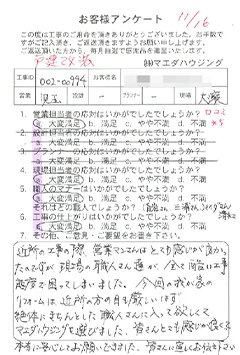 お客様アンケート
11/16
この度は工事のご用命を頂きありがとうございました。お手数で
すがご記入頂き、ご返送頂きますようお願い申し上げます。
ご返送頂いた方から、毎月抽選で感謝品を進呈いたします。
㈱マエダハウジング
工事ID 002-00994 お客様名
営業 設計 プランナー 現場
1. 営業担当者の応対はいかがでしたでしょうか?
a. 大変満足 b. 満足 c. やや不満 d. 不満
2. 設計担当者の応対はいかがでしたでしょうか?
a. 大変満足 b. 満足 c. やや不満 d. 不満
3. プランナーの応対はいかがでしたでしょうか?
a. 大変満足 b. 満足 c. やや不満 d. 不満
4. 現場担当者の応対はいかがでしたでしょうか?
a. 大変満足 b. 満足 c. やや不満 d. 不満
5. 職人のマナーはいかがでしたでしょうか?
a. 大変満足 b. 満足 c. やや不満 d. 不満
それはどの職人でしょうか?
6. 工事の仕上がりはいかがでしたでしょうか?
a. 大変満足 b. 満足 c. やや不満 d. 不満
7. その他、ご意見・ご要望をお書き下さい。
近所の工事の際、営業マンさんはとても感じが良かっ
たのですが 現場の職人さん達が 全て
今回の我が家の
リフォームは 近所の方の目も厳しいです。
絶体にきちんとした 職人さんに入って欲しくて
マエダハウジングを選びました。皆さんとても感じが良くて
本当に安心してお願いできました。皆さんに宜しくお伝え下さい